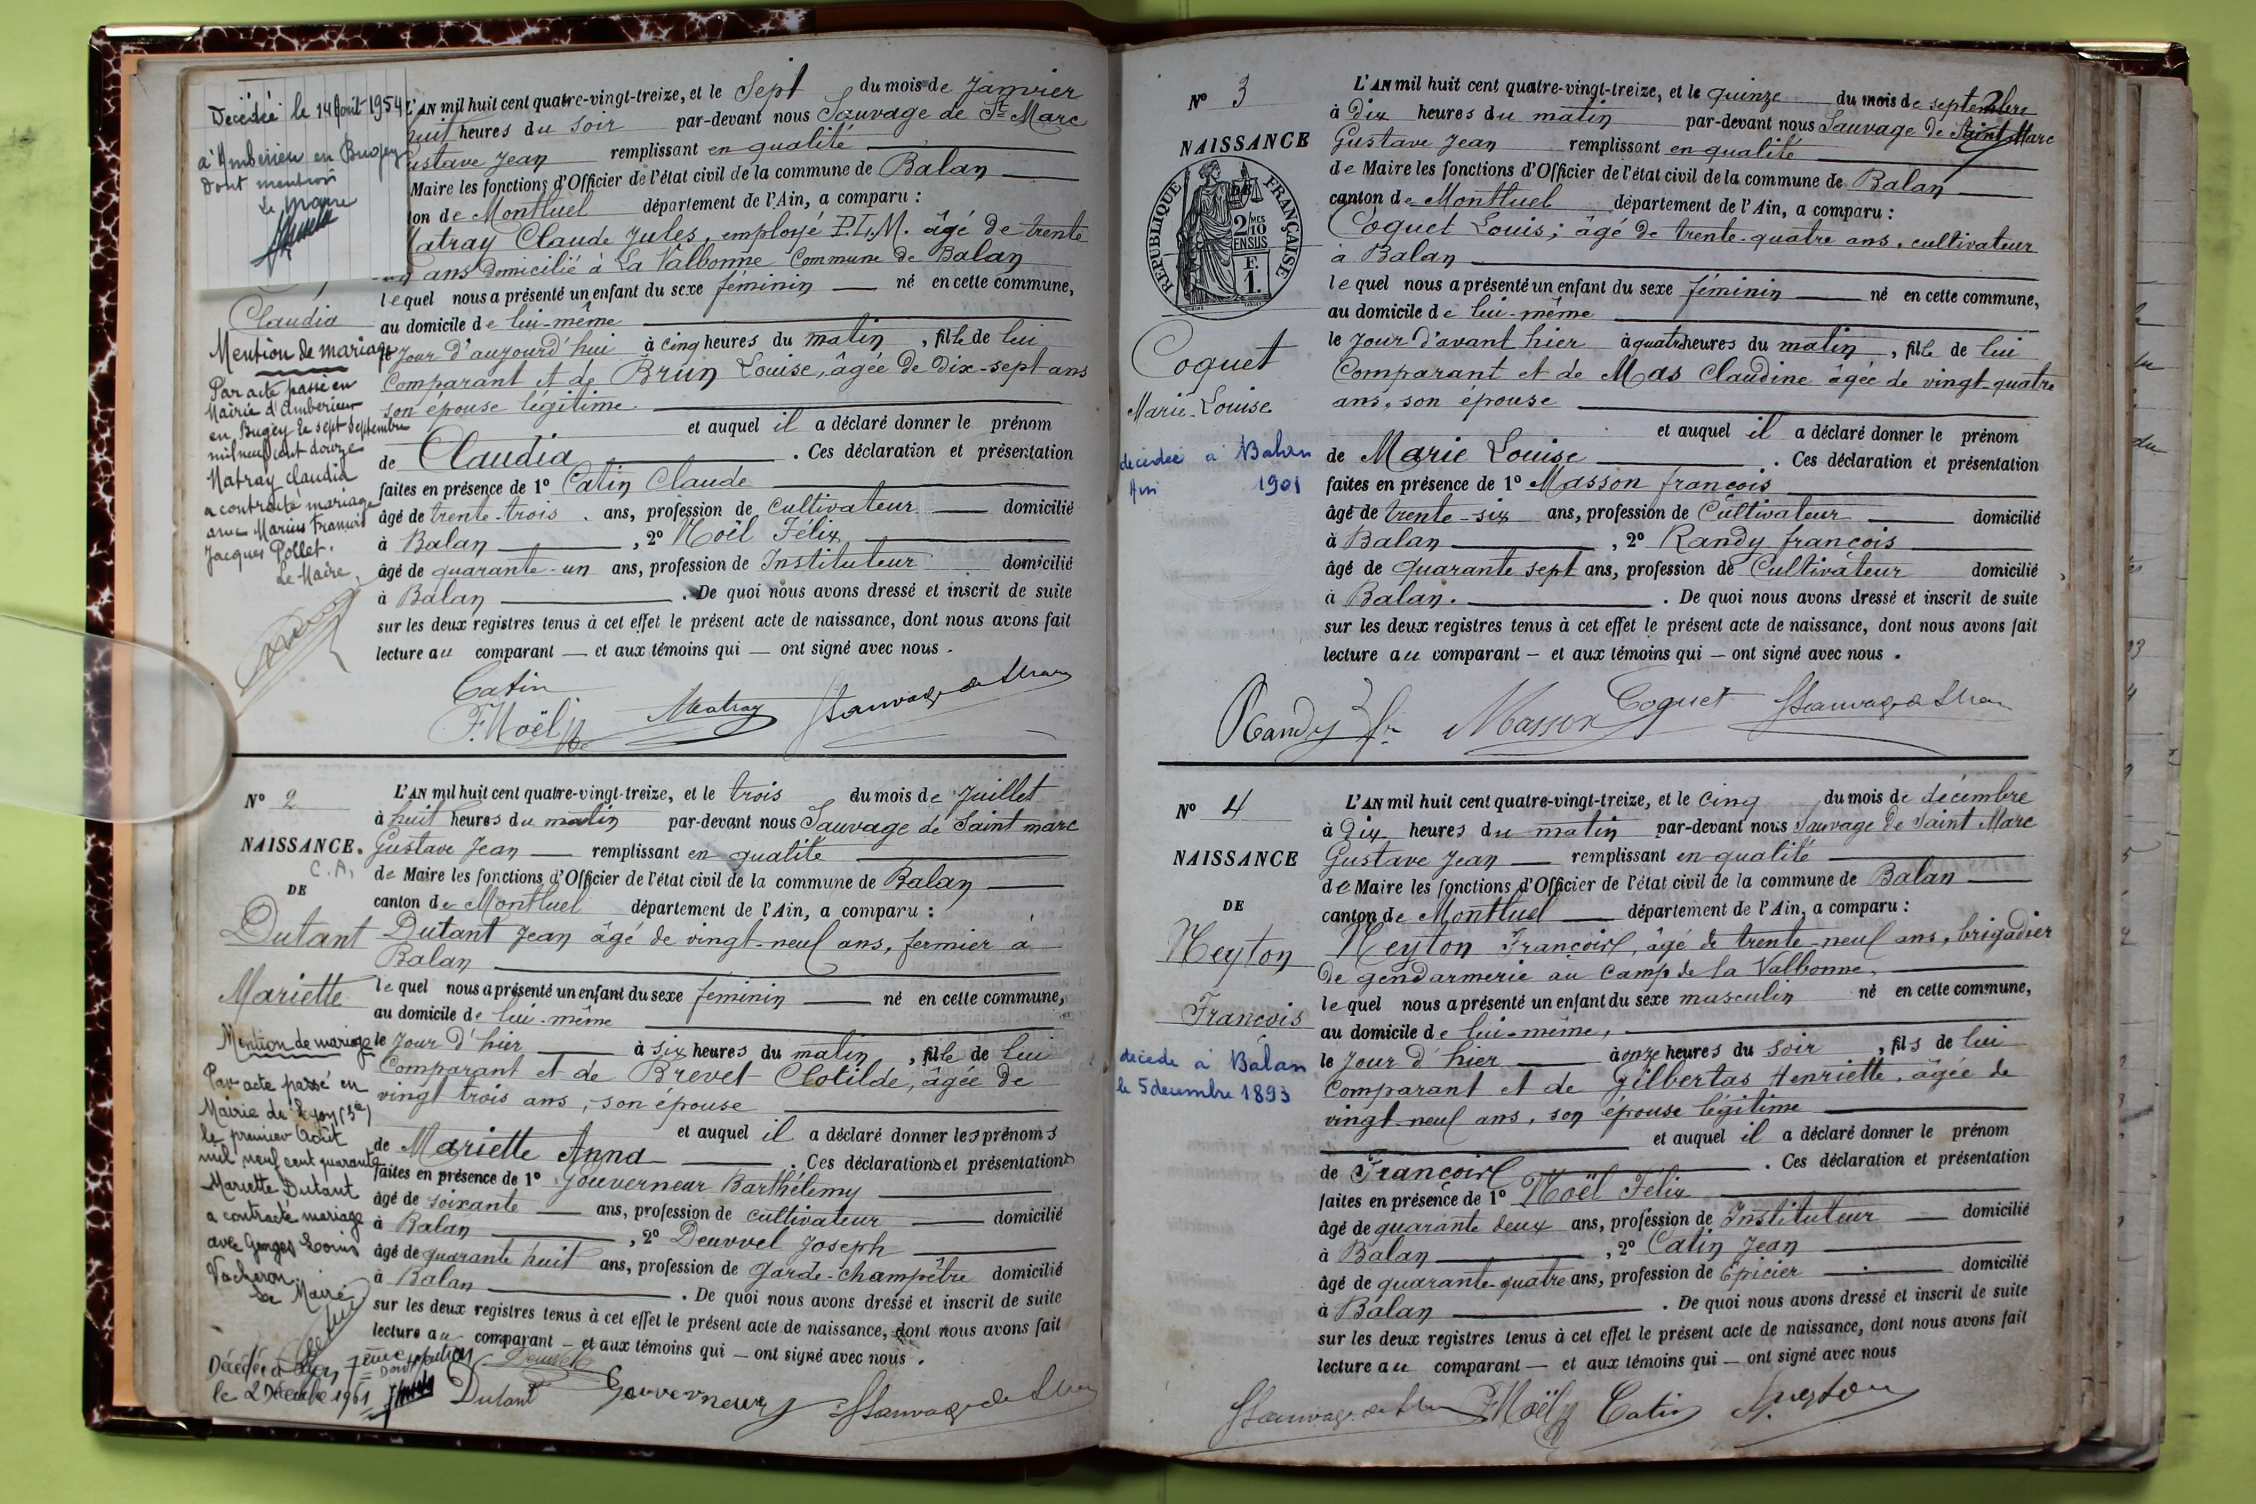 Décédée le 14 Août 1954
à Ambérieu en Bugey
Dont mention
Le Maire
L'AN mil huit cent quatre-vingt-treize, et le Sept du mois de Janvier
huit heures du soir par-devant nous Sauvage de St Marc
ustave Jean remplissant en qualité
Maire les fonctions d'Officier de l'état civil de la commune de Balan
ton de Montluel département de l'Ain, a comparu :
atray Claude Jules, employé P.L.M. âgé de trente
ans domicilié à La Valbonne Commune de Balan
lequel nous a présenté un enfant du sexe féminin né en cette commune,
au domicile de lui-même
le jour d'aujourd'hui à cinq heures du matin, fille de lui
Comparant et de Brun Louise, âgée de dix-sept ans
son épouse légitime.
et auquel il a déclaré donner le prénom
de Claudia. Ces déclaration et présentation
faites en présence de 1° Catin Claude
âgé de trente-trois ans, profession de cultivateur domicilié
à Balan, 2° Noël Félix
âgé de quarante-un ans, profession de Instituteur domicilié
à Balan. De quoi nous avons dressé et inscrit de suite
sur les deux registres tenus à cet effet le présent acte de naissance, dont nous avons fait
lecture au comparant — et aux témoins qui — ont signé avec nous.
Claudia
Mention de mariage
Par acte passé en
Mairie d'Ambérieu
en Bugey le sept septembre
mil neuf cent douze
Matray Claudia
a contracté mariage
avec Marius François
Jacques Pollet.
Le Maire,
Catin
F. Noël Matray Sauvage de St Marc
N° 2
NAISSANCE.
C.A.
DE
Dutant
Mariette
L'AN mil huit cent quatre-vingt-treize, et le trois du mois de Juillet
à huit heures du matin par-devant nous Sauvage de Saint Marc
Gustave Jean — remplissant en qualité
de Maire les fonctions d'Officier de l'état civil de la commune de Balan
canton de Montluel département de l'Ain, a comparu :
Dutant Jean âgé de vingt-neuf ans, fermier à
Balan
lequel nous a présenté un enfant du sexe féminin né en cette commune,
au domicile de lui-même
le jour d'hier à six heures du matin, fille de lui
Comparant et de Brevet Clotilde, âgée de
vingt trois ans, son épouse
et auquel il a déclaré donner les prénoms
de Mariette Anna. Ces déclarations et présentations
faites en présence de 1° Gouverneur Barthélemy
âgé de soixante ans, profession de cultivateur domicilié
à Balan, 2° Deuvvel Joseph
âgé de quarante huit ans, profession de garde-champêtre domicilié
à Balan. De quoi nous avons dressé et inscrit de suite
sur les deux registres tenus à cet effet le présent acte de naissance, dont nous avons fait
lecture au comparant — et aux témoins qui — ont signé avec nous.
Mention de mariage
Par acte passé en
Mairie de Lyon (3e)
le premier Août
mil neuf cent quarante
Mariette Dutant
a contracté mariage
avec Georges Louis
Vacheron.
Le Maire
Décédée à Lyon 7ème
le 2 Décembre 1961
Dont mention
Dutant Gouverneur Sauvage de St Marc
N° 3
NAISSANCE
DE
RÉPUBLIQUE FRANÇAISE
2 MES
10
EN SUS
F.
1.
Coquet
Marie-Louise.
décédée à Balan
Ain 1901
L'AN mil huit cent quatre-vingt-treize, et le quinze du mois de septembre
à dix heures du matin par-devant nous Sauvage de Saint Marc
Gustave Jean remplissant en qualité
de Maire les fonctions d'Officier de l'état civil de la commune de Balan
canton de Montluel département de l'Ain, a comparu :
Coquet Louis, âgé de trente-quatre ans, cultivateur
à Balan
lequel nous a présenté un enfant du sexe féminin né en cette commune,
au domicile de lui-même
le jour d'avant hier à quatre heures du matin, fille de lui
Comparant et de Mas Claudine âgée de vingt quatre
ans, son épouse
et auquel il a déclaré donner le prénom
de Marie Louise. Ces déclaration et présentation
faites en présence de 1° Masson françois
âgé de trente-six ans, profession de Cultivateur domicilié
à Balan, 2° Randy françois
âgé de quarante sept ans, profession de Cultivateur domicilié
à Balan. De quoi nous avons dressé et inscrit de suite
sur les deux registres tenus à cet effet le présent acte de naissance, dont nous avons fait
lecture au comparant — et aux témoins qui — ont signé avec nous.
Randy fr Masson Coquet Sauvage de St Marc
N° 4
NAISSANCE
DE
Neyton
François
décédé à Balan
le 5 décembre 1893
L'AN mil huit cent quatre-vingt-treize, et le cinq du mois de décembre
à dix heures du matin par-devant nous Sauvage de Saint Marc
Gustave Jean — remplissant en qualité
de Maire les fonctions d'Officier de l'état civil de la commune de Balan
canton de Montluel département de l'Ain, a comparu :
Neyton François, âgé de trente-neuf ans, brigadier
de gendarmerie au camp de la Valbonne,
lequel nous a présenté un enfant du sexe masculin né en cette commune,
au domicile de lui-même,
le jour d'hier à onze heures du soir, fils de lui
Comparant et de Gilbertas Henriette, âgée de
vingt-neuf ans, son épouse légitime
et auquel il a déclaré donner le prénom
de François. Ces déclaration et présentation
faites en présence de 1° Noël Félix
âgé de quarante deux ans, profession de Instituteur domicilié
à Balan, 2° Catin Jean
âgé de quarante-quatre ans, profession de Epicier domicilié
à Balan. De quoi nous avons dressé et inscrit de suite
sur les deux registres tenus à cet effet le présent acte de naissance, dont nous avons fait
lecture au comparant — et aux témoins qui — ont signé avec nous
Sauvage de St Marc F. Noël Catin Neyton